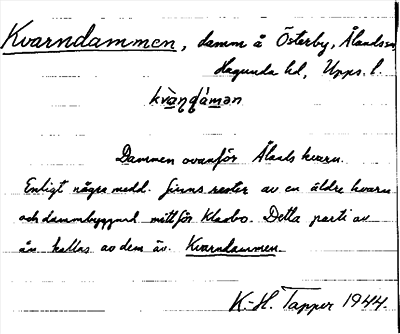 Kvarndammen, damm å Österby, Ålands sn
Hagunda hd, Upps. l.
kvàn̥ɖámən
Dammen ovanför Ålands kvarn.
Enligt några medd. finns rester av en äldre kvarn
och dammbyggnad mittför Klasbo. Detta parti av
ån kallas av dem äv. Kvarndammen.
K.-H. Tapper 1944.